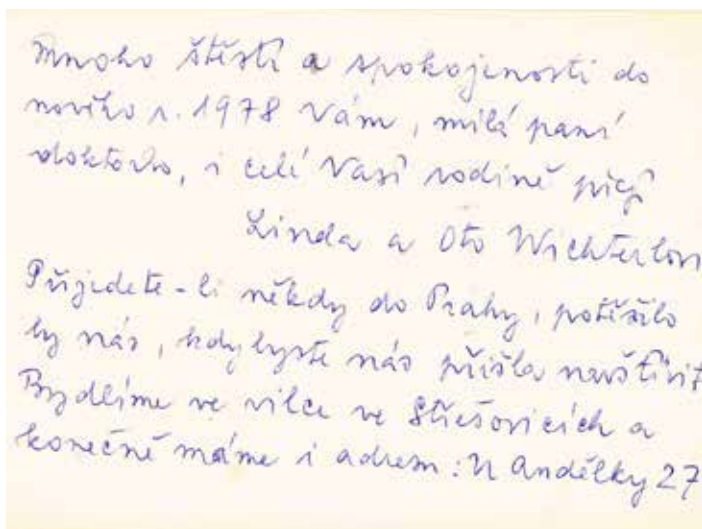 Mnoho štěstí a spokojenosti do
nového r. 1978 Vám, milá paní
doktorko, i celé Vaší rodině přejí
Linda a Oto Wichterlovi
Přijedete-li někdy do Prahy, potěšilo
by nás, kdybyste nás přišla navštívit
Bydlíme ve vilce ve Střešovicích a
konečně máme i adresu: U Andělky 27